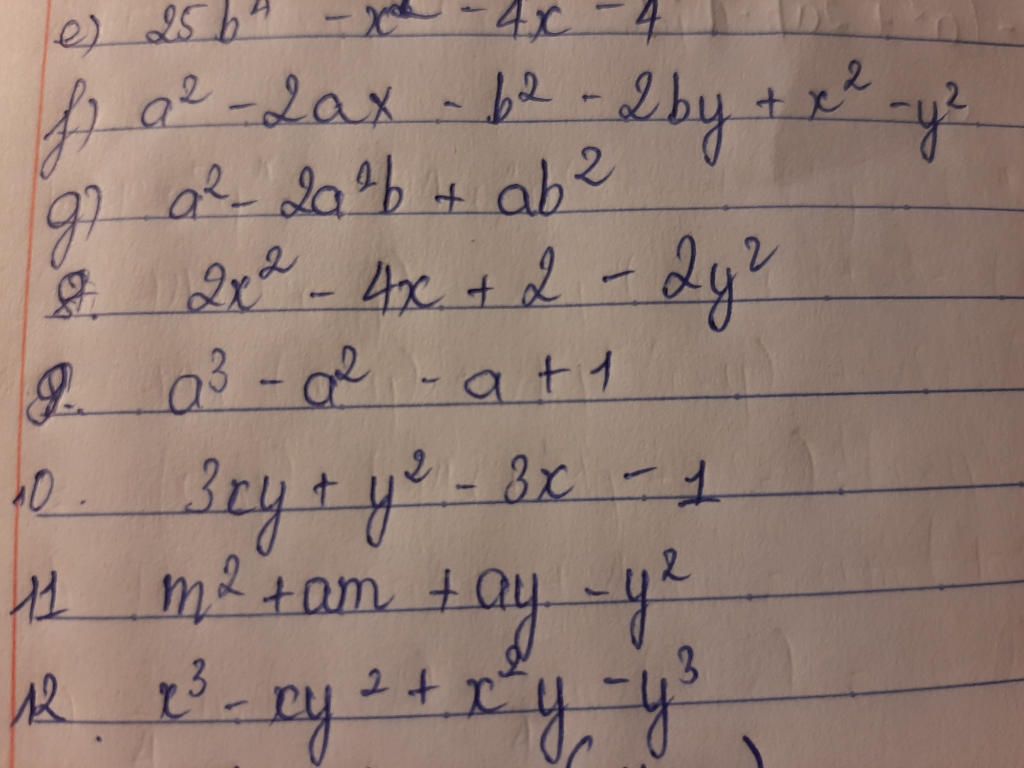 e) 25b⁴ - x² - 4x - 4
f) a² - 2ax - b² - 2by + x² - y²
g) a² - 2a²b + ab²
8. 2x² - 4x + 2 - 2y²
9. a³ - a² - a + 1
10. 3xy + y² - 3x - 1
11 m² + am + ay - y²
12 x³ - xy² + x²y - y³